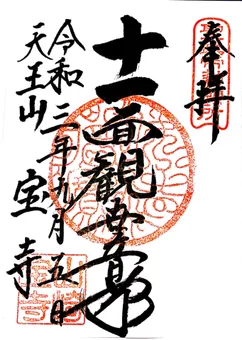 奉拝
十一面観世音
令和三年九月五日
天王山
宝寺